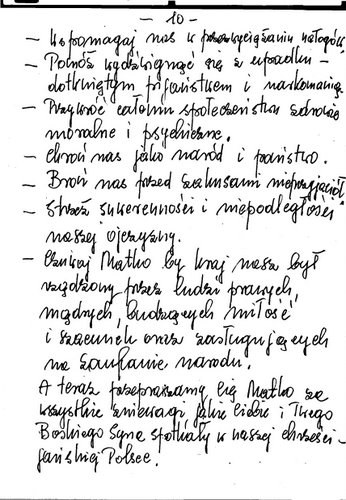 - 10 -
- Wspomagaj nas w przezwyciężaniu nałogów
- Pomóż wydźwignąć się z upadku -
dotkniętym pijaństwem i narkomanią.
- Przywróć całemu społeczeństwu zdrowie
moralne i psychiczne.
- Chroń nas jako naród i państwo.
- Broń nas przed zakusami nieprzyjaciół.
- Strzeż suwerenności i niepodległości
naszej ojczyzny.
- Czuwaj Matko by kraj nasz był
rządzony przez ludzi prawych,
mądrych, budzących miłość
i szacunek oraz zasługujących
na zaufanie narodu.
A teraz przepraszamy Cię Matko za
wszystkie zniewagi, jakie Ciebie i Twego
Boskiego Syna spotkały w naszej chrześci-
jańskiej Polsce.